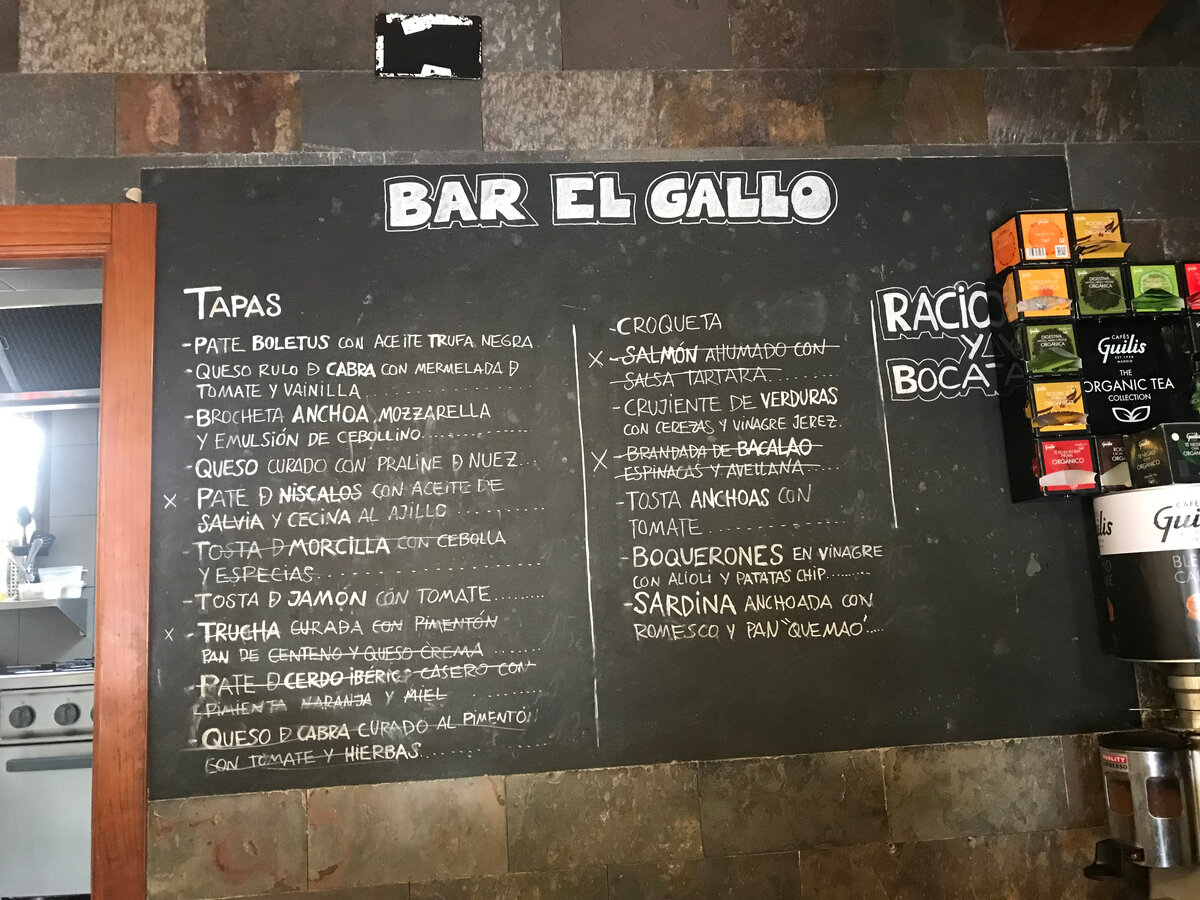 BAR EL GALLO
TAPAS
-PATE BOLETUS CON ACEITE TRUFA NEGRA
-QUESO RULO D CABRA CON MERMELADA D
TOMATE Y VAINILLA
-BROCHETA ANCHOA, MOZZARELLA
Y EMULSIÓN DE CEBOLLINO
-QUESO CURADO CON PRALINE D NUEZ
X -PATE D NÍSCALOS CON ACEITE DE
SALVIA Y CECINA AL AJILLO
-TOSTA D MORCILLA CON CEBOLLA
Y ESPECIAS
-TOSTA D JAMÓN CON TOMATE
X -TRUCHA CURADA CON PIMENTÓN
PAN DE CENTENO Y QUESO CREMA
-PATE D CERDO IBÉRICO CASERO CON
PIMIENTA NARANJA Y MIEL
QUESO D CABRA CURADO AL PIMENTÓN
CON TOMATE Y HIERBAS
-CROQUETA
X -SALMÓN AHUMADO CON
SALSA TARTARA
-CRUJIENTE DE VERDURAS
CON CEREZAS Y VINAGRE JEREZ
X -BRANDADA DE BACALAO
ESPINACAS Y AVELLANA
-TOSTA ANCHOAS CON
TOMATE
-BOQUERONES EN VINAGRE
CON ALIOLI Y PATATAS CHIP
-SARDINA ANCHOADA CON
ROMESCO Y PAN "QUEMAO"
RACIO
Y
BOCAT
CAFÉS
Guilis
MADRID
THE
ORGANIC TEA
COLLECTION
DIGESTIVA
ORGÁNICA
DIGESTIVA
ORGÁNICA
ORGÁNICO
CAFÉ
Guilis
QUALITY
ESPRESSO